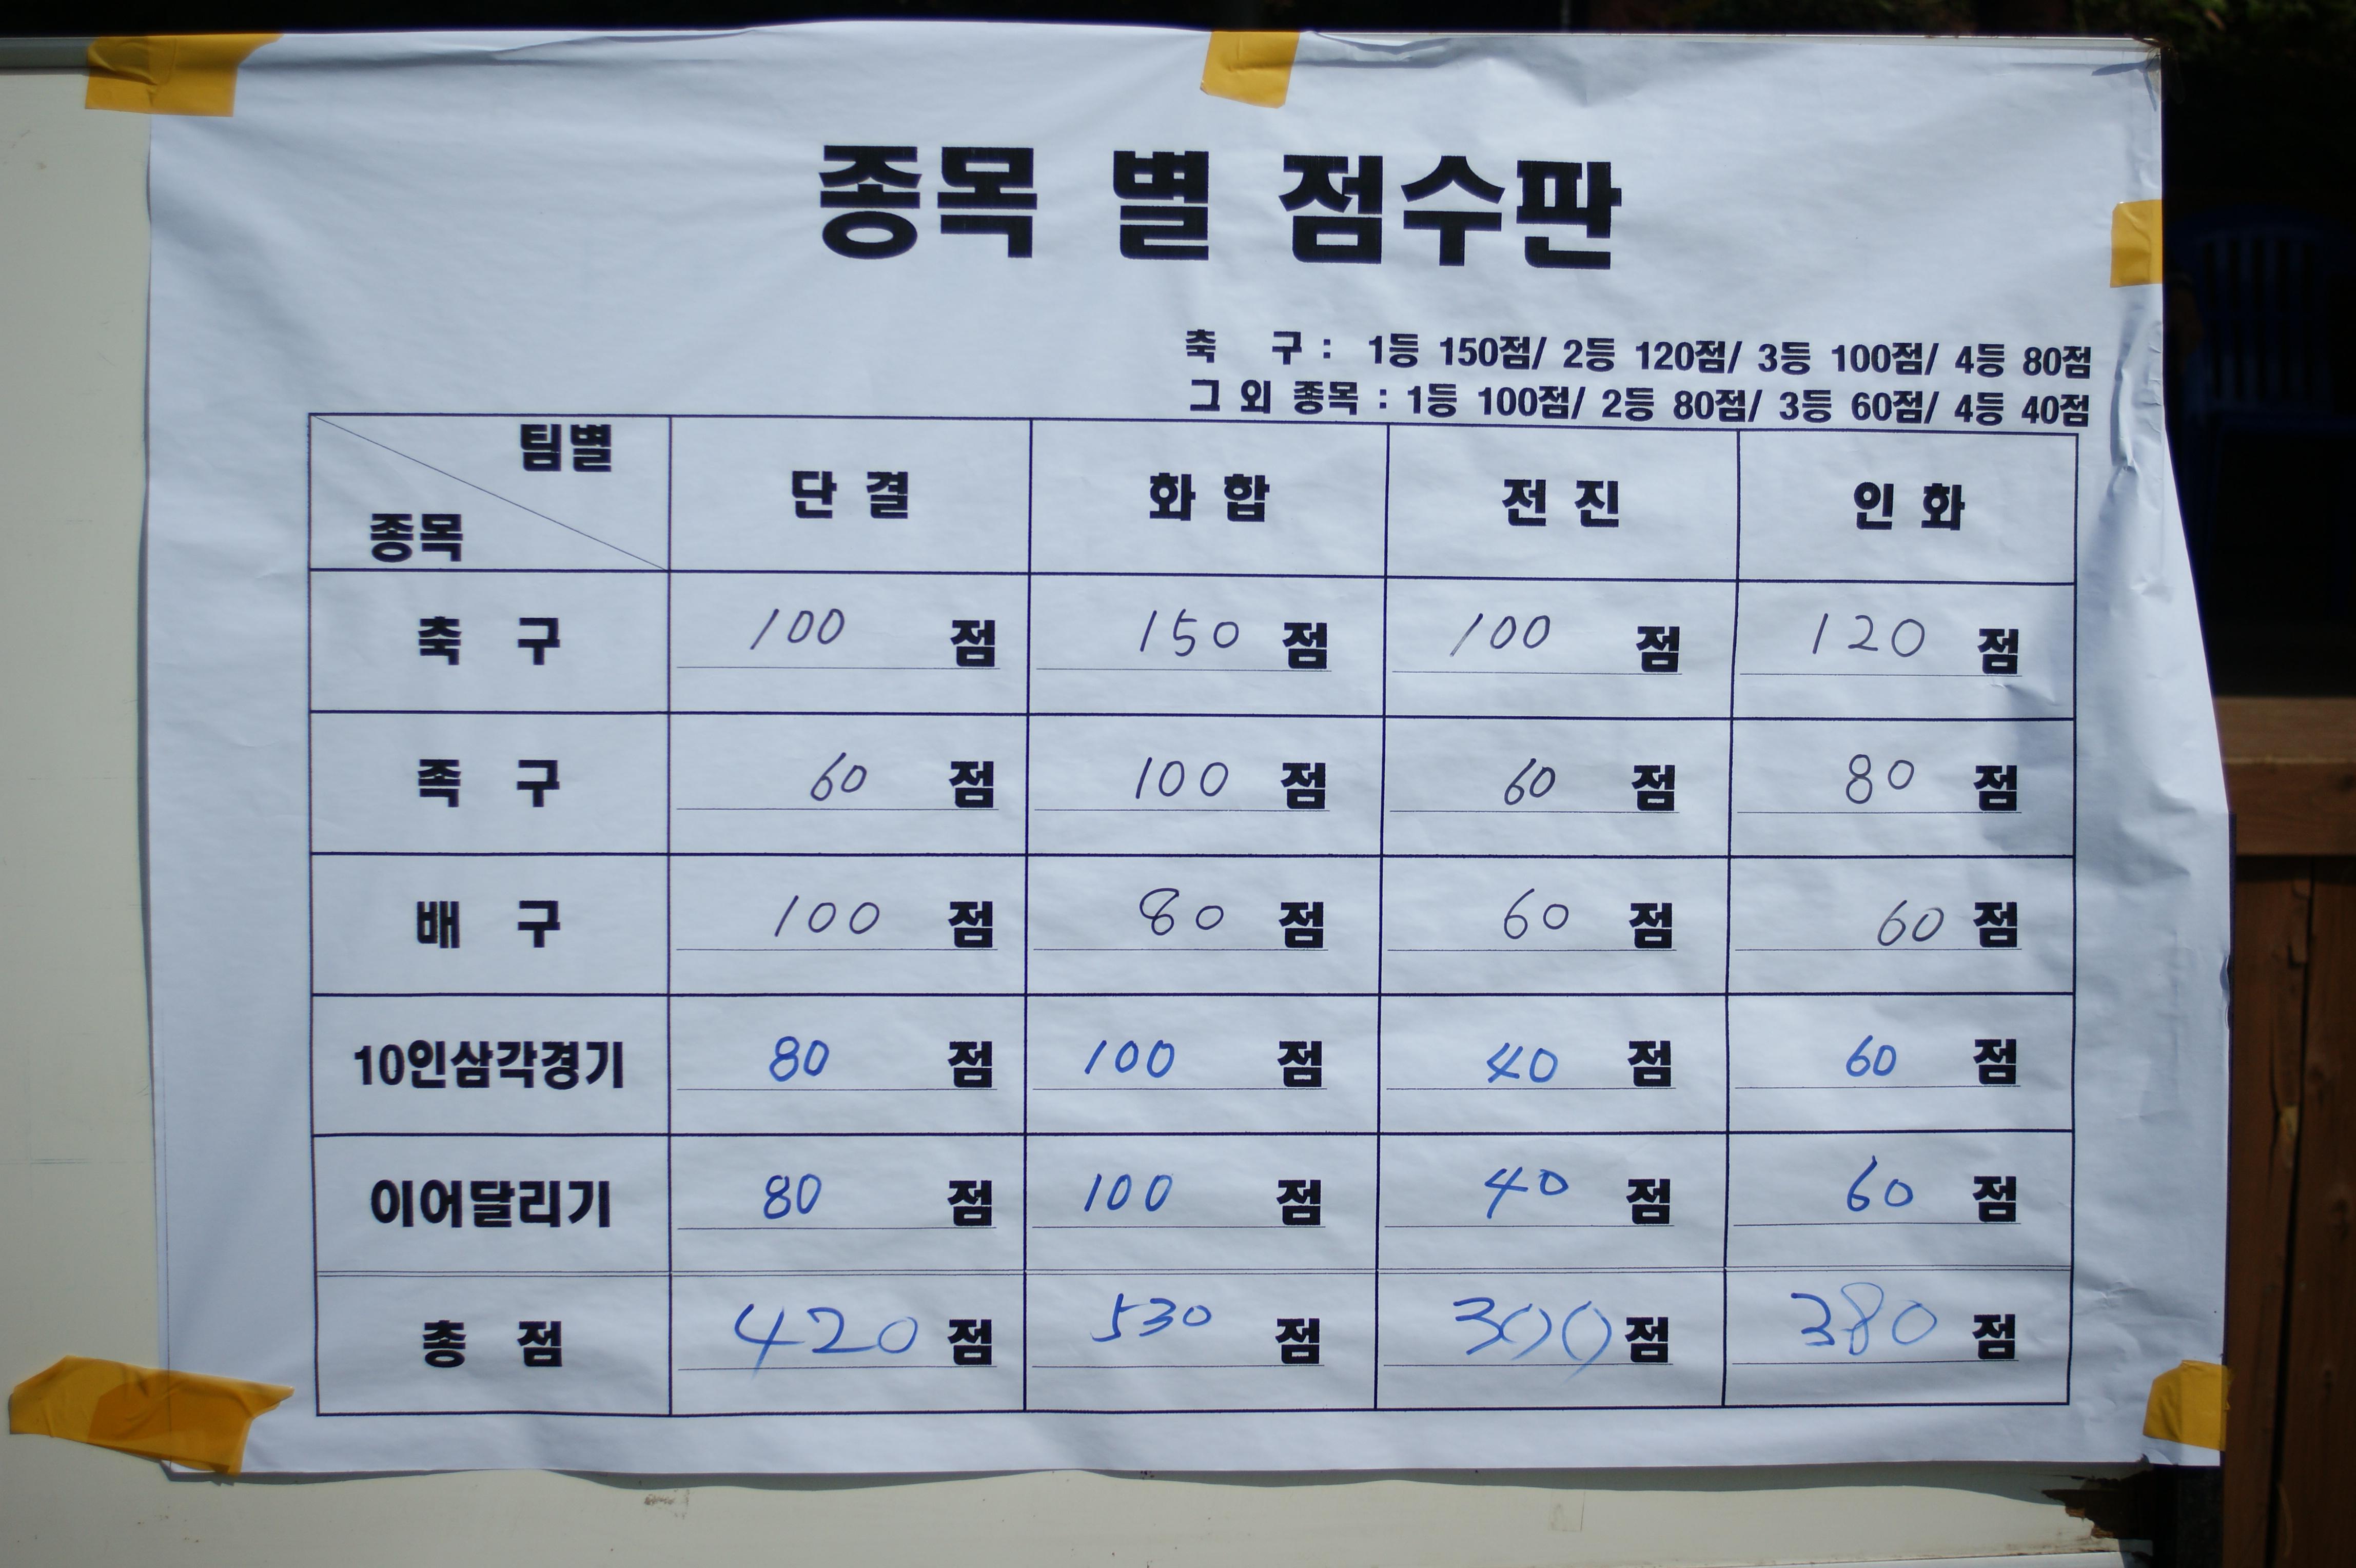 종목 별 점수판
축 구 : 1등 150점/ 2등 120점/ 3등 100점/ 4등 80점
그 외 종목 : 1등 100점/ 2등 80점/ 3등 60점/ 4등 40점
팀별
종목 단 결 화 합 전 진 인 화
축 구 100 점 150 점 100 점 120 점
족 구 60 점 100 점 60 점 80 점
배 구 100 점 80 점 60 점 60 점
10인삼각경기 80 점 100 점 40 점 60 점
이어달리기 80 점 100 점 40 점 60 점
총 점 420 점 530 점 300 점 380 점